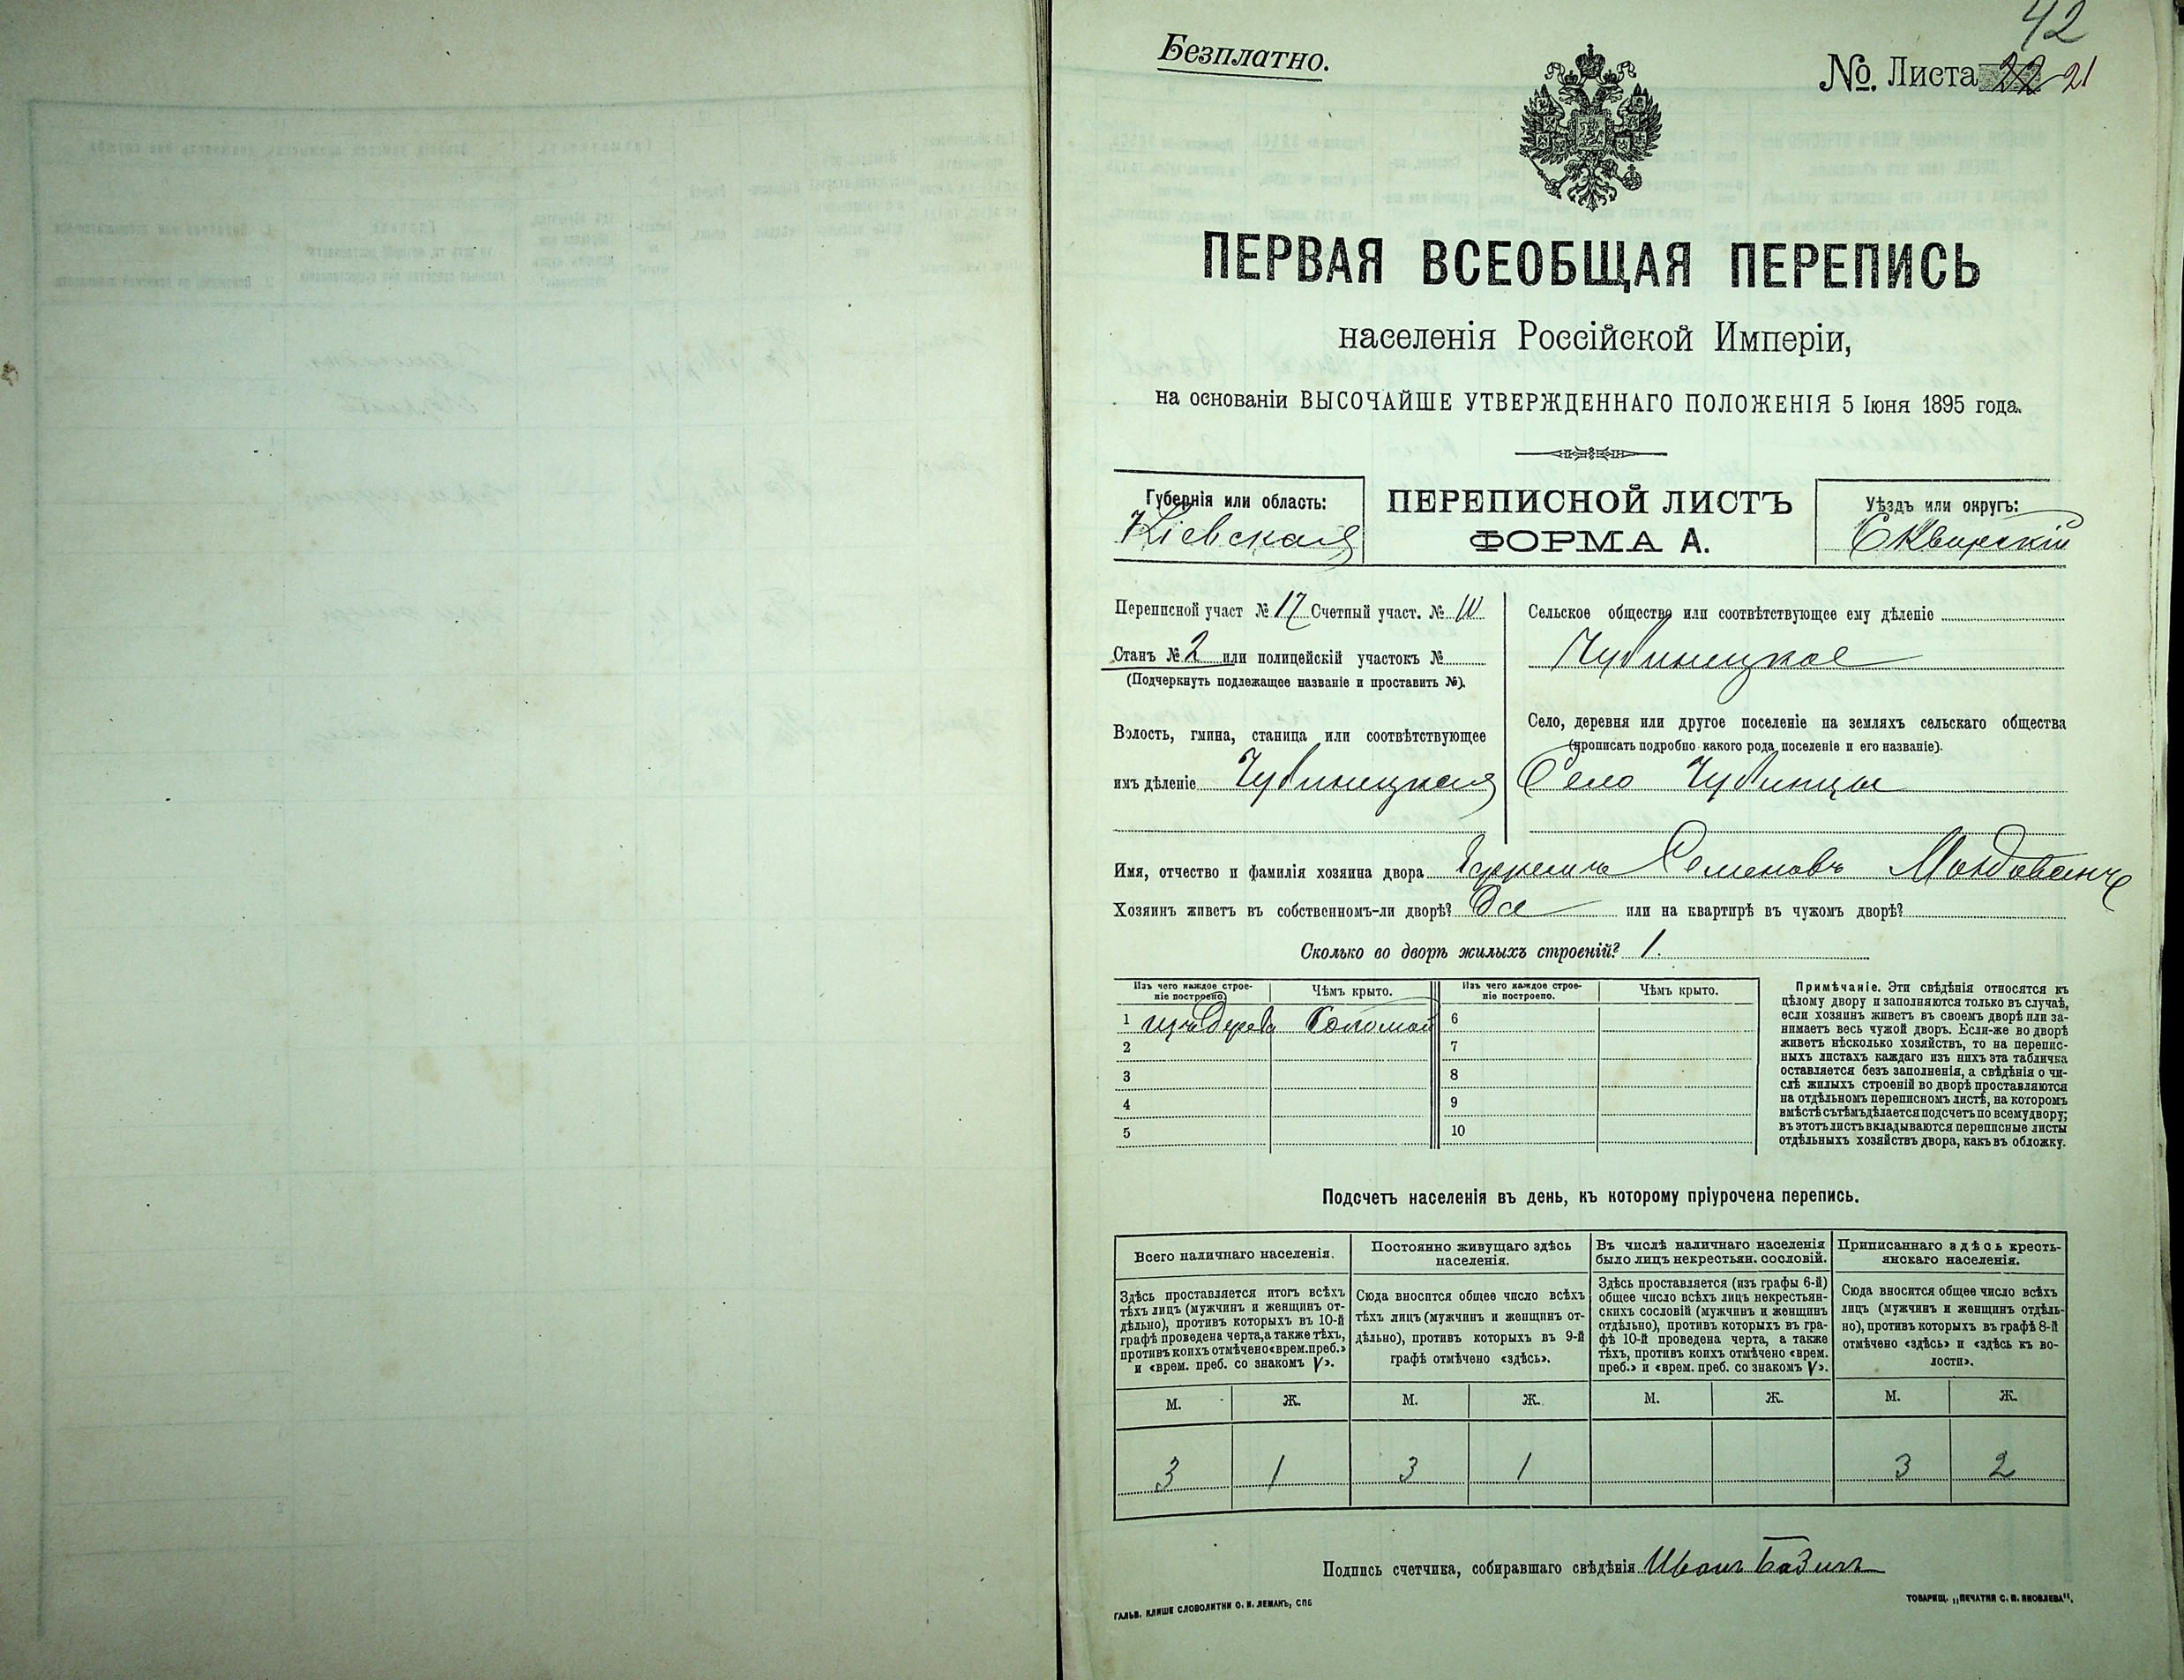 42
Безплатно.
№. Листа 22 21
ПЕРВАЯ ВСЕОБЩАЯ ПЕРЕПИСЬ
населенія Россійской Имперіи,
на основаніи ВЫСОЧАЙШЕ УТВЕРЖДЕННАГО ПОЛОЖЕНІЯ 5 Іюня 1895 года.
Губернія или область:
Кіевская
ПЕРЕПИСНОЙ ЛИСТЪ
ФОРМА А.
Уѣздъ или округъ:
Сквирскій
Переписной участ № 17 Счетный участ. №
Станъ № 2 или полицейскій участокъ №
(Подчеркнуть подлежащее названіе и проставить №).
Волость, гмина, станица или соотвѣтствующее
имъ дѣленіе Чубинецкая
Сельское общество или соотвѣтствующее ему дѣленіе
Чубинецкое
Село, деревня или другое поселеніе на земляхъ сельскаго общества
(прописать подробно какого рода поселеніе и его названіе).
Село Чубинцы
Имя, отчество и фамилія хозяина двора Семеновъ Молдованъ
Хозяинъ живетъ въ собственномъ-ли дворѣ? Да или на квартирѣ въ чужомъ дворѣ?
Сколько во дворѣ жилыхъ строеній? 1.
Изъ чего каждое строе-
ніе построено.
Чѣмъ крыто.
Изъ чего каждое строе-
ніе построено.
Чѣмъ крыто.
1 изъ дерева Соломой 6
2 7
3 8
4 9
5 10
Примѣчаніе. Эти свѣдѣнія относятся къ
цѣлому двору и заполняются только въ случаѣ,
если хозяинъ живетъ въ своемъ дворѣ или за-
нимаетъ весь чужой дворъ. Если-же во дворѣ
живетъ нѣсколько хозяйствъ, то на перепис-
ныхъ листахъ каждаго изъ нихъ эта табличка
оставляется безъ заполненія, а свѣдѣнія о чи-
слѣ жилыхъ строеній во дворѣ проставляются
на отдѣльномъ переписномъ листѣ, на которомъ
вмѣстѣ съ тѣмъ дѣлается подсчетъ по всему двору;
въ этотъ листъ вкладываются переписные листы
отдѣльныхъ хозяйствъ двора, какъ въ обложку.
Подсчетъ населенія въ день, къ которому пріурочена перепись.
Всего наличнаго населенія.
Здѣсь проставляется итогъ всѣхъ
тѣхъ лицъ (мужчинъ и женщинъ от-
дѣльно), противъ которыхъ въ 10-й
графѣ проведена черта, а также тѣхъ,
противъ коихъ отмѣчено «врем. преб.»
и «врем. преб. со знакомъ V».
Постоянно живущаго здѣсь
населенія.
Сюда вносится общее число всѣхъ
тѣхъ лицъ (мужчинъ и женщинъ от-
дѣльно), противъ которыхъ въ 9-й
графѣ отмѣчено «здѣсь».
Въ числѣ наличнаго населенія
было лицъ некрестьян. сословій.
Здѣсь проставляется (изъ графы 6-й)
общее число всѣхъ лицъ некрестьян-
скихъ сословій (мужчинъ и женщинъ
отдѣльно), противъ которыхъ въ гра-
фѣ 10-й проведена черта, а также
тѣхъ, противъ коихъ отмѣчено «врем.
преб.» и «врем. преб. со знакомъ V».
Приписаннаго здѣсь кресть-
янскаго населенія.
Сюда вносится общее число всѣхъ
лицъ (мужчинъ и женщинъ отдѣль-
но), противъ которыхъ въ графѣ 8-й
отмѣчено «здѣсь» и «здѣсь къ во-
лости».
М. Ж. М. Ж. М. Ж. М. Ж.
3 1 3 1 3 2
Подпись счетчика, собиравшаго свѣдѣнія Иванъ
ГАЛЬВ. КЛИШЕ СЛОВОЛИТНИ О. И. ЛЕМАНЪ, СПБ
ТОВАРИЩ. „ПЕЧАТНЯ С. П. ЯКОВЛЕВА“.